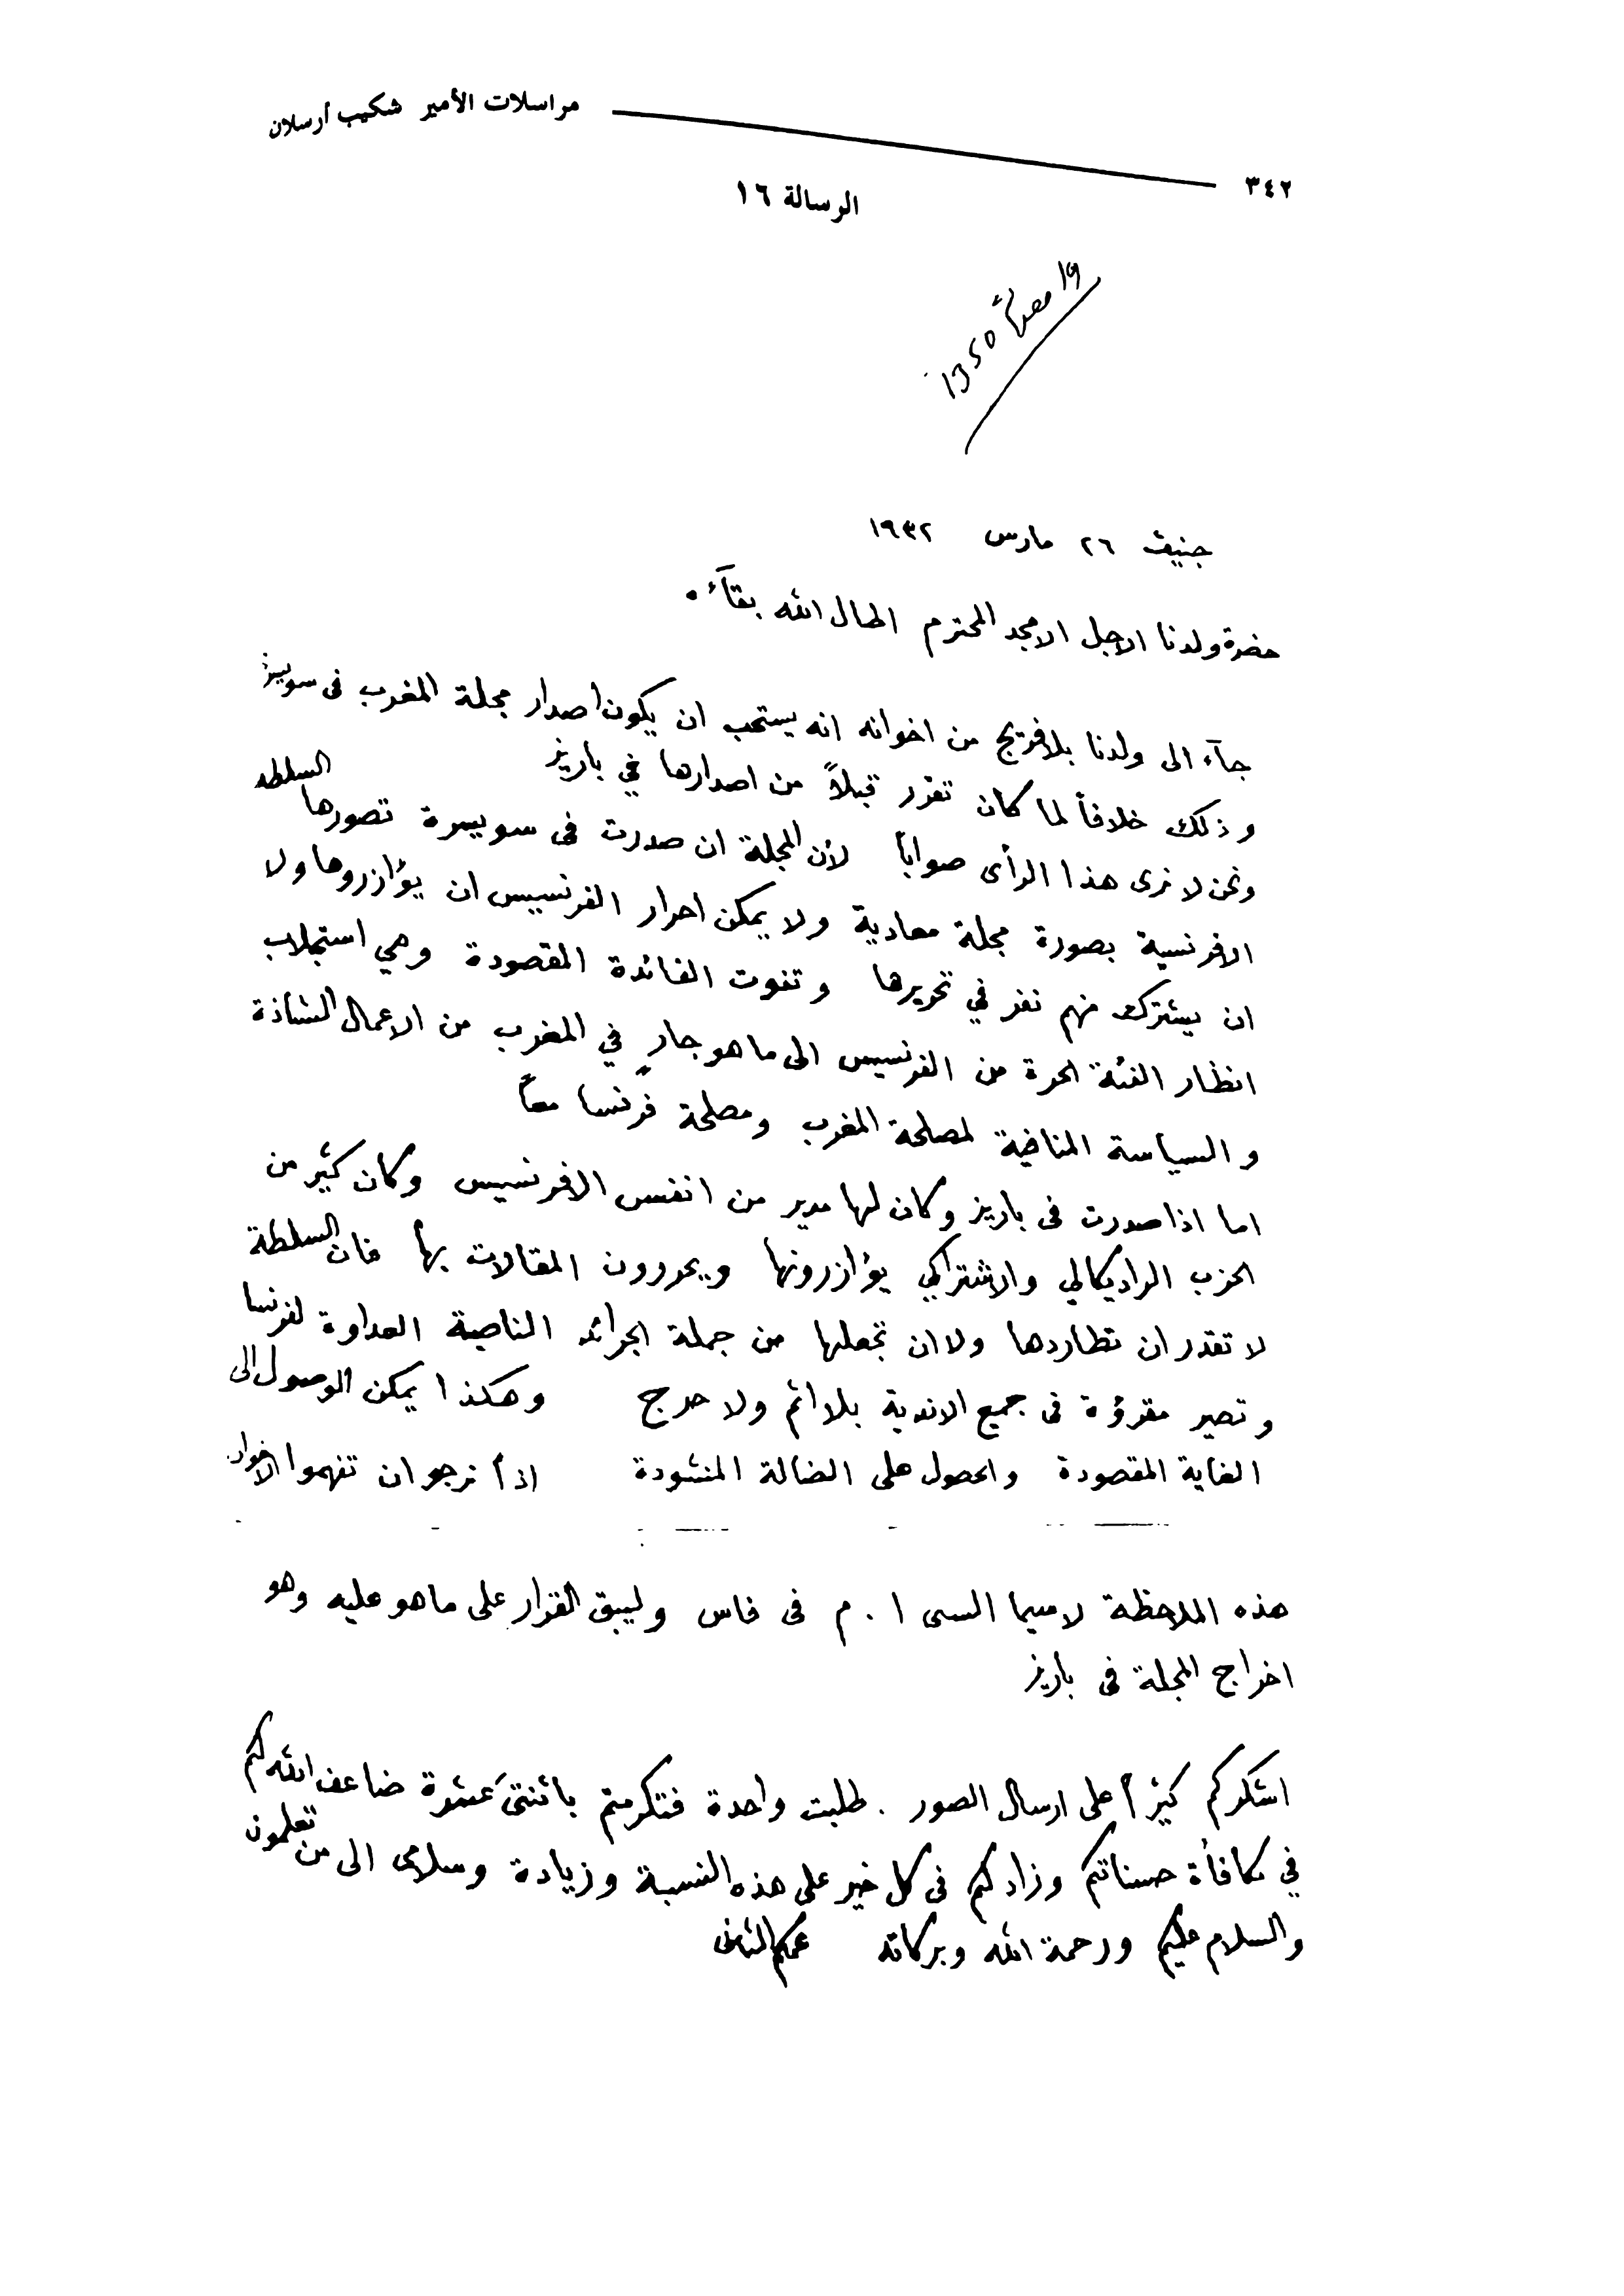 مراسلات الأمير شكيب أرسلان
٣٤٢
الرسالة ١٦
1350
جنيف ٢٦ مارس ١٩٣٢
حضرة ولدنا الاجل الامجد المحترم اطال الله بقآءه
جآء الى ولدنا بلافريج من اخوانه انه يستحب ان يكون اصدار مجلة المغرب فى سويسرة
وذلك خلافاً لما كان تقرر قبلاً من اصدارها في باريز
ونحن لا نرى هذا الرأى صواباً لأن المجلة ان صدرت فى سويسرة تصورها السلطة
الافرنسية بصورة مجلة معادية ولا يمكن احرار الفرنسيس ان يؤازروها ولا
ان يشترك منهم نفر في تحريرها وتفوت الفائدة المقصودة وهي استجلاب
انظار الفئة الحرة من الفرنسيس الى ما هو جارٍ في المغرب من الاعمال الشاذة
والسياسة المنافية لمصلحة المغرب ومصلحة فرنسا معاً
اما اذا صدرت فى باريز وكان لها مدير من انفس الافرنسيس وكان كثير من
الحزب الراديكالي والاشتراكي يؤازرونها ويحررون المقالات بها فان السلطة
لا تقدر ان تطاردها ولا ان تجعلها من جملة الجرائد الناصبة العداوة لفرنسا
وتصير مقرؤة فى جميع الاندية بلا اثم ولا حرج وهكذا يمكن الوصول الى
الغاية المقصودة والحصول على الضالة المنشودة اذاً نرجو ان تفهموا الاخوان
هذه الملاحظة لاسيما السى ا . م فى فاس وليبق القرار على ما هو عليه وهو
اخراج المجلة فى باريز
اشكركم كثيراً على ارسال الصور . طلبت واحدة فتكرمتم باثنتىَ عشرة ضاعف الله لكم
في مكافأة حسناتكم وزادكم فى كل خير على هذه النسبة وزيادة وسلامى الى من تعلمون
والسلام عليكم ورحمة الله وبركاته عمكم الثانى